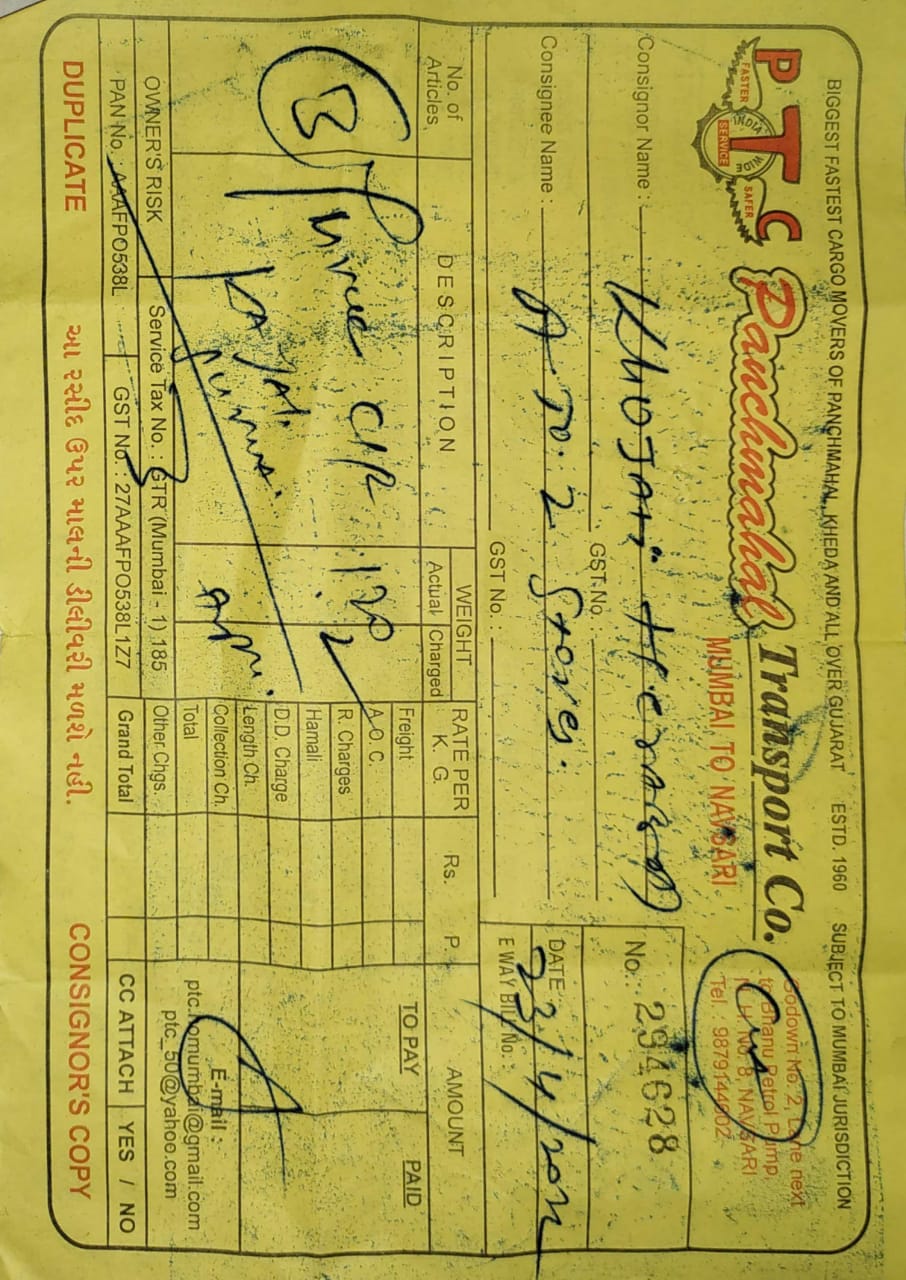 BIGGEST FASTEST CARGO MOVERS OF PANCHMAHAL, KHEDA AND ALL OVER GUJARAT ESTD. 1960 SUBJECT TO MUMBAI JURISDICTION
PTC
FASTER INDIA WIDE SAFER
SERVICE
Panchmahal Transport Co.
MUMBAI TO NAVSARI
Godown No. 2, Lane next
to Bhanu Petrol Pump,
N. H. No. 8, NAVSARI
Tel. : 9879144002
Consignor Name :
GST No.
No. 294628
Consignee Name : A TO. 2 Stores.
GST No. :
DATE 23/4/
E WAY BILL No. :
No. of Articles
DESCRIPTION
WEIGHT
Actual Charged
RATE PER K. G.
Rs. P.
AMOUNT
TO PAY PAID
3
120
Freight
A.O.C.
R. Charges
Hamali
D.D. Charge
Length Ch.
Collection Ch.
Total
Other Chgs.
Grand Total
E-mail :
ptc.homumbai@gmail.com
ptc_50@yahoo.com
OWNER'S RISK Service Tax No. : GTR (Mumbai - 1) 185
PAN No. : AAAFPO538L GST No. : 27AAAFPO538L1Z7
CC ATTACH YES / NO
DUPLICATE આ રસીદ ઉપર માલની ડીલીવરી મળશે નહી. CONSIGNOR'S COPY